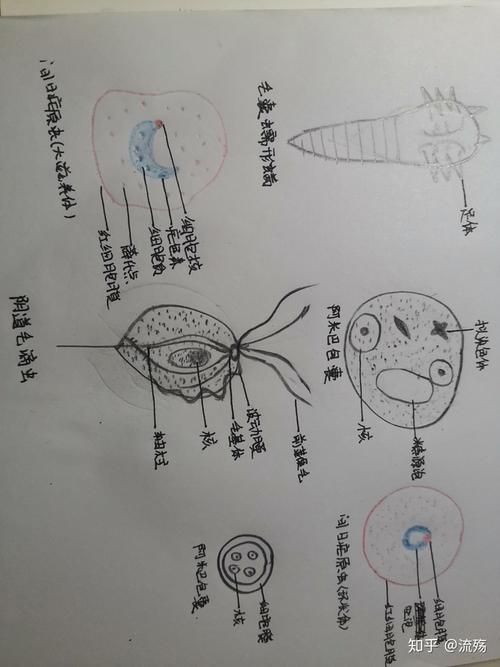 毛囊蠕形螨
足体
阿米巴包囊
拟染色体
核
糖原泡
间日疟原虫(环状体)
红细胞膜
间日疟原虫(大滋养体)
细胞核
疟色素
细胞质
薛氏点
红细胞膜
阴道毛滴虫
前鞭毛
波动膜
毛基体
核
轴柱
阿米巴包囊
核
知乎 @流殇